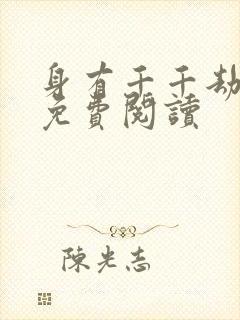 身有千千劫
免費閱讀
陳光志